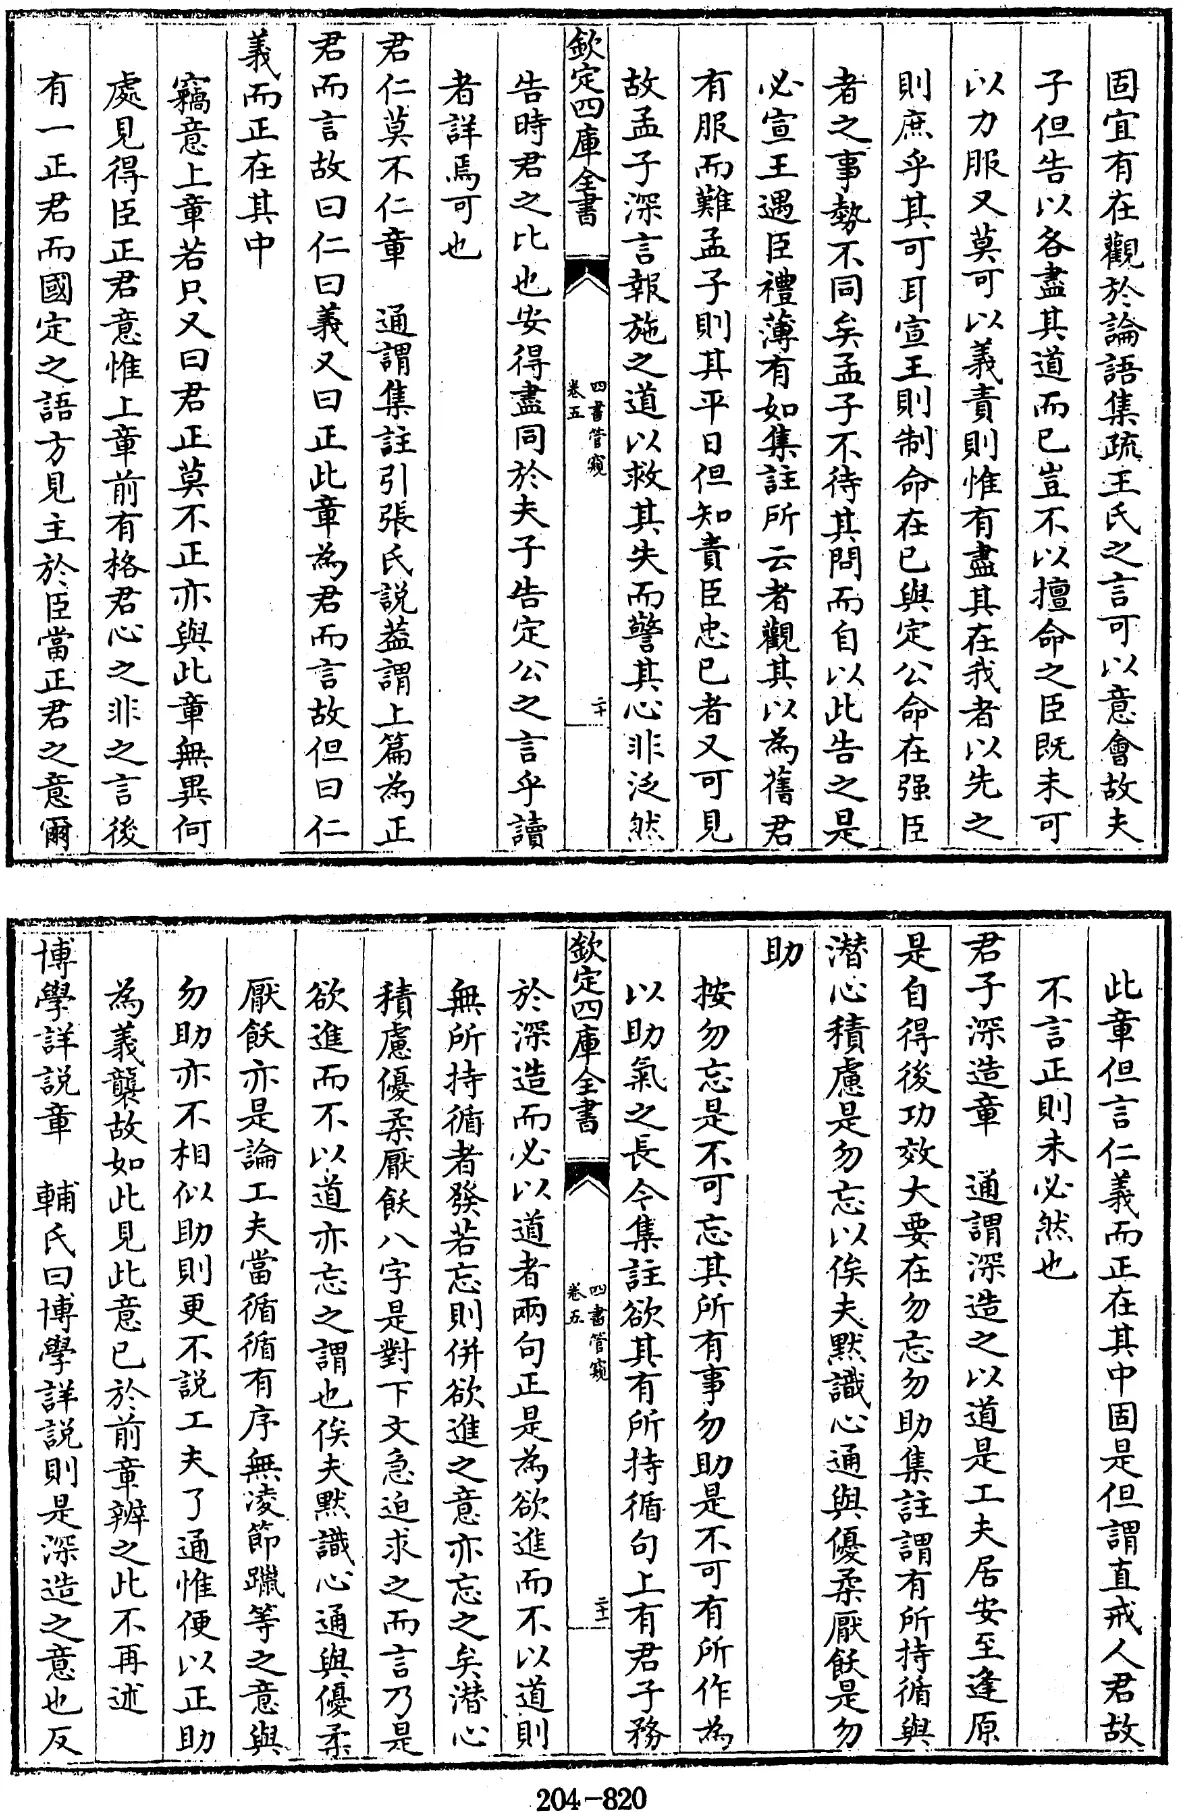 固宜有在觀於論語集疏王氏之言可以意會故夫
子但告以各盡其道而已豈不以擅命之臣既未可
以力服又莫可以義責則惟有盡其在我者以先之
則庶乎其可耳宣王則制命在已與定公命在强臣
者之事勢不同矣孟子不待其問而自以此告之是
必宣王遇臣禮薄有如集註所云者觀其以為舊君
有服而難孟子則其平日但知責臣忠已者又可見
故孟子深言報施之道以救其失而警其心非泛然
欽定四庫全書
四書管窺
卷五
二十
告時君之比也安得盡同於夫子告定公之言乎讀
者詳焉可也
君仁莫不仁章　通謂集註引張氏説葢謂上篇為正
君而言故曰仁曰義又曰正此章為君而言故但曰仁
義而正在其中
竊意上章若只又曰君正莫不正亦與此章無異何
處見得臣正君意惟上章前有格君心之非之言後
有一正君而國定之語方見主於臣當正君之意爾
此章但言仁義而正在其中固是但謂直戒人君故
不言正則未必然也
君子深造章　通謂深造之以道是工夫居安至逢原
是自得後功效大要在勿忘勿助集註謂有所持循與
潛心積慮是勿忘以俟夫默識心通與優柔厭飫是勿
助
按勿忘是不可忘其所有事勿助是不可有所作為
以助氣之長今集註欲其有所持循句上有君子務
欽定四庫全書
四書管窺
卷五
二十一
於深造而必以道者兩句正是為欲進而不以道則
無所持循者發若忘則併欲進之意亦忘之矣潛心
積慮優柔厭飫八字是對下文急迫求之而言乃是
欲進而不以道亦忘之謂也俟夫默識心通與優柔
厭飫亦是論工夫當循循有序無凌節躐等之意與
勿助亦不相似助則更不説工夫了通惟便以正助
為義襲故如此見此意已於前章辨之此不再述
博學詳説章　輔氏曰博學詳説則是深造之意也反
204-820